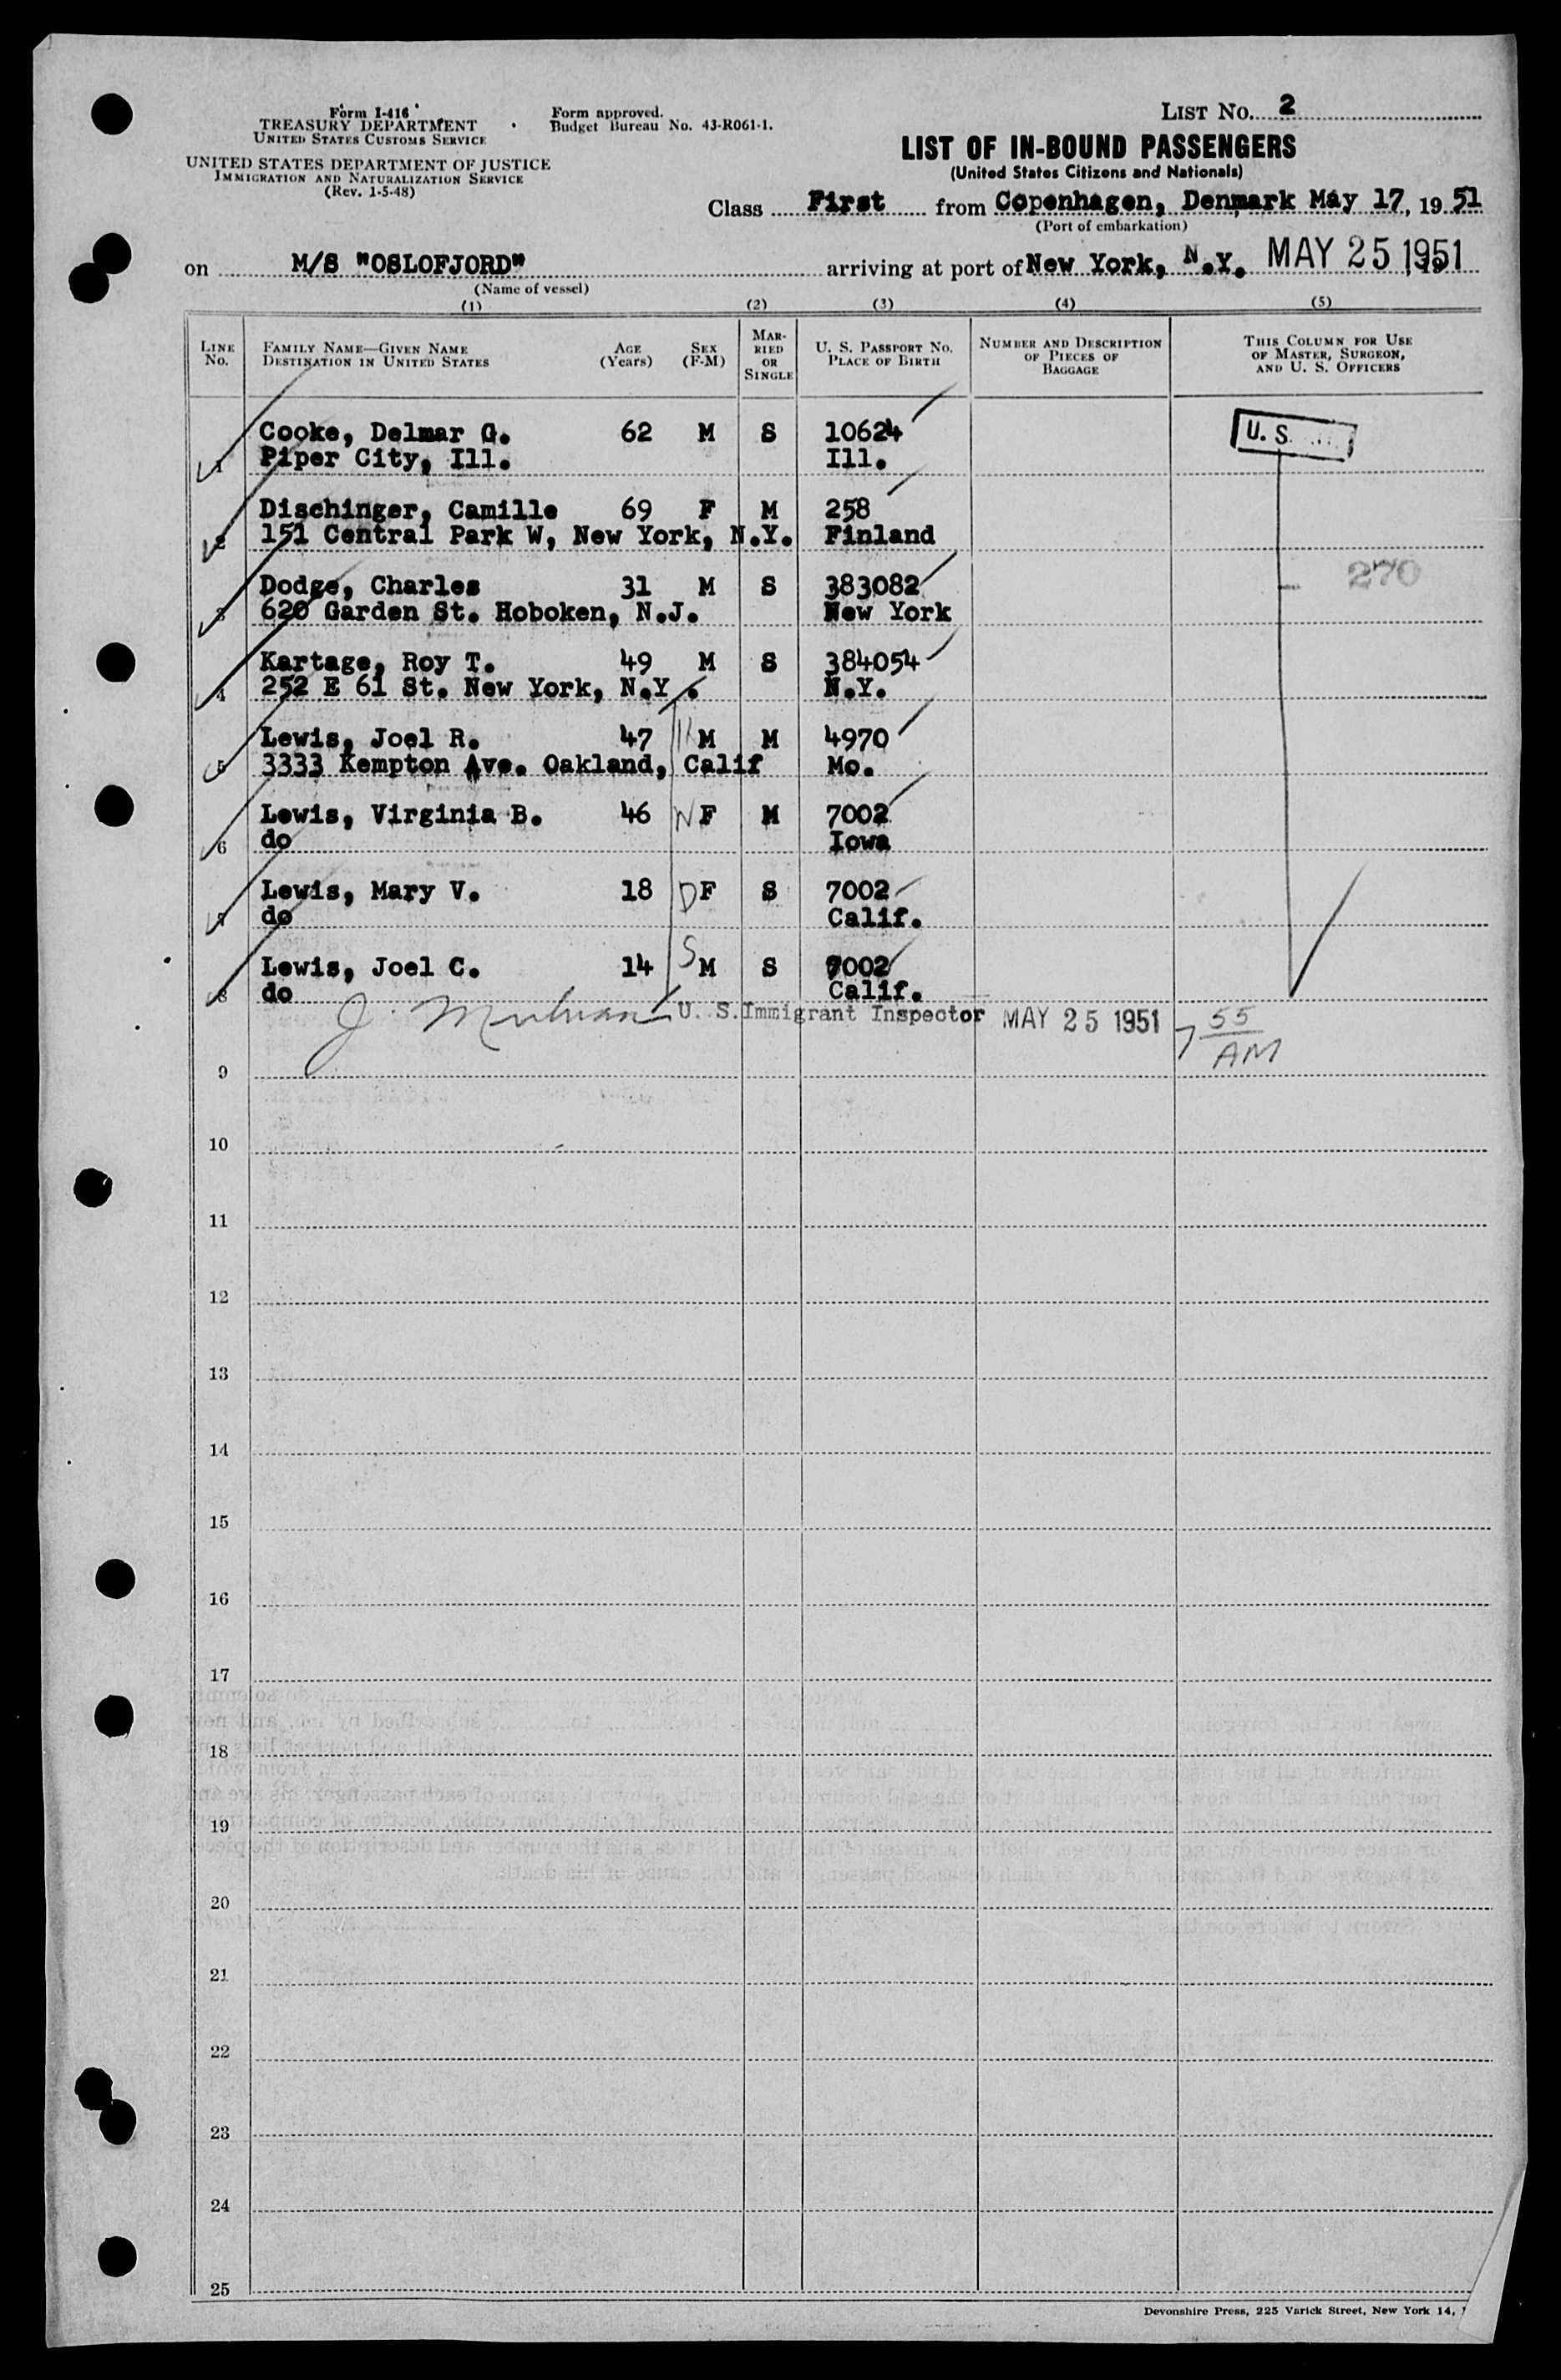 Form I-416
TREASURY DEPARTMENT
UNITED STATES CUSTOMS SERVICE
UNITED STATES DEPARTMENT OF JUSTICE
IMMIGRATION AND NATURALIZATION SERVICE
(Rev. 1-5-48)
Form approved.
Budget Bureau No. 43-R061-1.
LIST No. 2
LIST OF IN-BOUND PASSENGERS
(United States Citizens and Nationals)
Class First from Copenhagen, Denmark May 17, 1951
(Port of embarkation)
on M/S "OSLOFJORD" arriving at port of New York, N.Y. MAY 25 1951
(Name of vessel)
(1) (2) (3) (4) (5)
LINE No. FAMILY NAME—GIVEN NAME DESTINATION IN UNITED STATES AGE (Years) SEX (F-M) MARRIED OR SINGLE U. S. PASSPORT No. PLACE OF BIRTH NUMBER AND DESCRIPTION OF PIECES OF BAGGAGE THIS COLUMN FOR USE OF MASTER, SURGEON, AND U. S. OFFICERS
Cooke, Delmar G. 62 M S 10624 U. S.
1 Piper City, Ill. Ill.
Dischinger, Camille 69 F M 258
2 151 Central Park W, New York, N.Y. Finland
Dodge, Charles 31 M S 383082 270
3 620 Garden St. Hoboken, N.J. New York
Kartage, Roy T. 49 M S 384054
4 252 E 61 St. New York, N.Y. N.Y.
Lewis, Joel R. 47 H M M 4970
5 3333 Kempton Ave. Oakland, Calif Mo.
Lewis, Virginia B. 46 W F M 7002
6 do Iowa
Lewis, Mary V. 18 D F S 7002
7 do Calif.
Lewis, Joel C. 14 S M S 7002
8 do Calif.
J. U. S. Immigrant Inspector MAY 25 1951 7 55 AM
9
10
11
12
13
14
15
16
17
18
19
20
21
22
23
24
25
Devonshire Press, 225 Varick Street, New York 14,